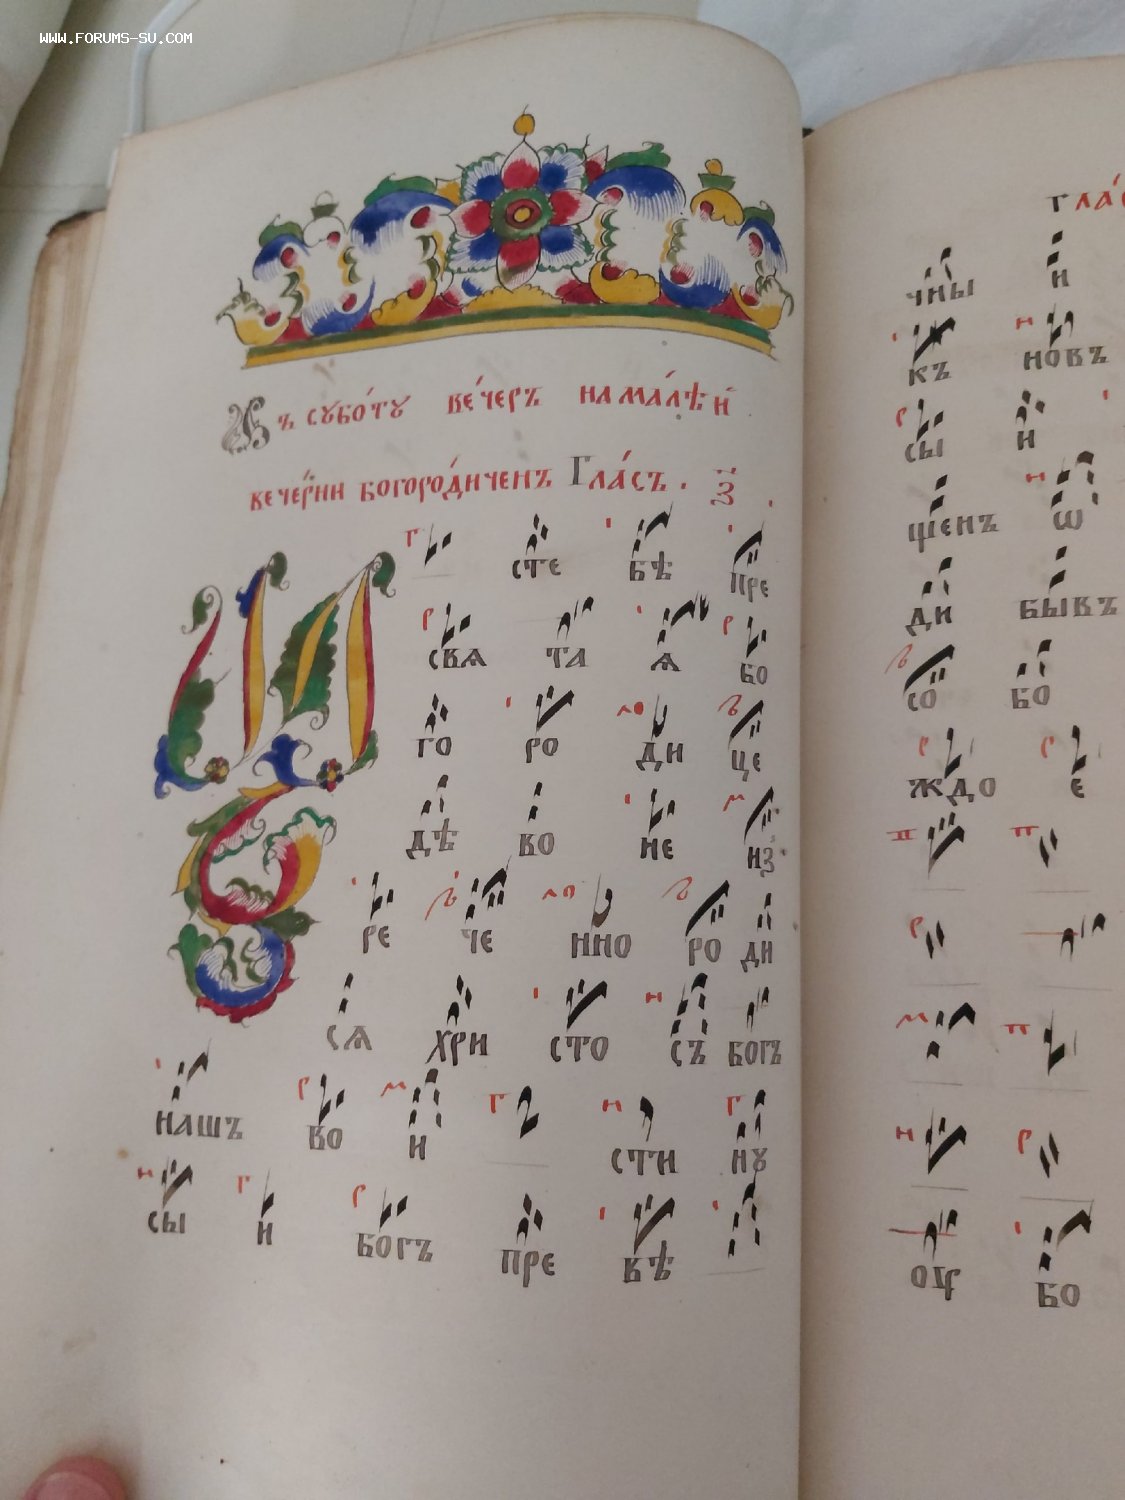 WWW.FORUMS-SU.COM
Въ сꙋбо́тꙋ ве́черъ на ма́лѣй
вече́рни богоро́диченъ Гла́съ . з҃ .
Из те бѣ пре
свѧ та ѧ бо
го ро ди це
дѣ во не из
ре че нно ро ди
сѧ хри сто съ богъ
нашъ во и сти нꙋ
сы и богъ пре вѣ
гла́с
чны и
къ новъ
сы и
щенъ ѡ
ди бывъ
со бо
ждо е
оц бо